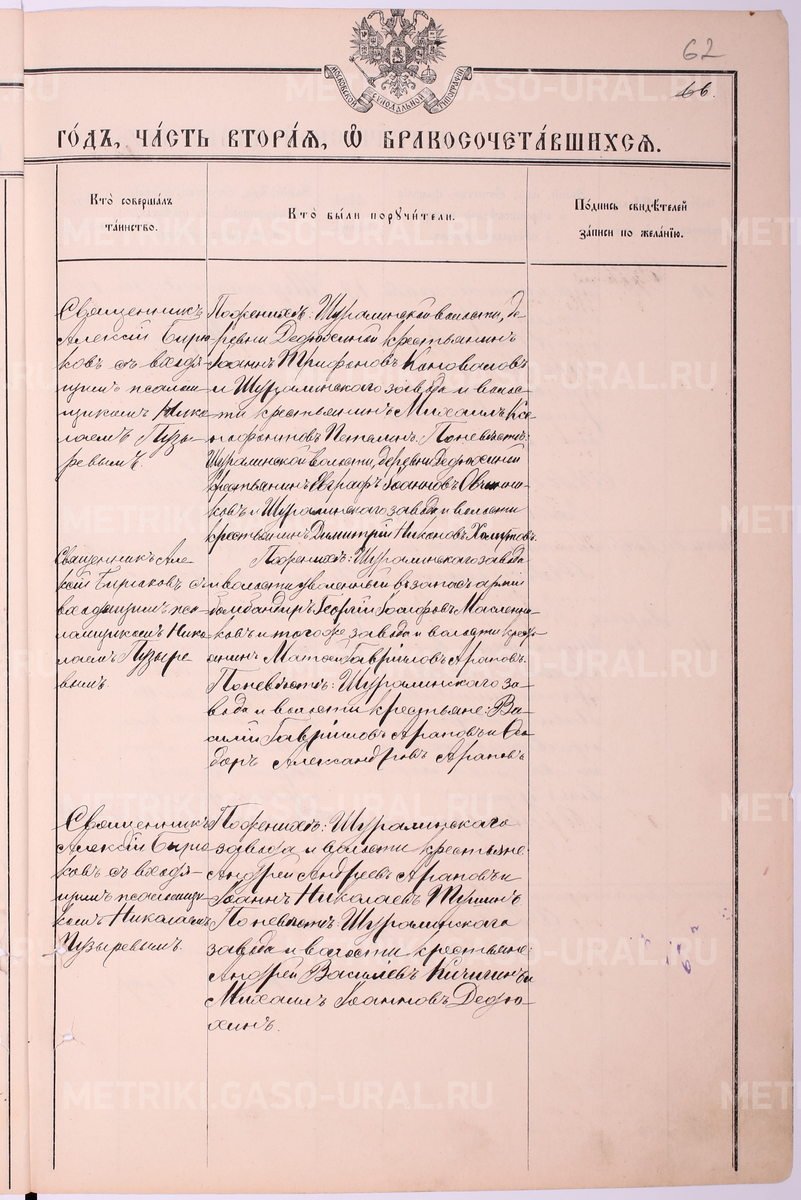 62
66.
МОСКОВСКОЙ СѴНОДАЛЬНОЙ ТИПОГРАФІИ
ГОДЪ, ЧАСТЬ ВТОРАЯ, Ѡ БРАКОСОЧЕТАВШИХСЯ.
Кто совершалъ
таинство.
Кто были поручители.
Подпись свидѣтелей
записи по желанію.
Священникъ
Алексій Бирю
ковъ съ владѣ
щимъ псалом
щикомъ Нико
лаемъ Пузы-
ревымъ.
По женихѣ: Шуралинской волости, де
ревни Дедюхиной крестьянинъ
Іоаннъ Трифоновъ Коноваловъ
и Шуралинскаго завода и волос
ти крестьянинъ Михаилъ Ксе
нофонтовъ Петелинъ. По невѣстѣ:
Шуралинской волости, деревни Дедюхиной
крестьянинъ Евграфъ Іоанновъ Овчинни
ковъ и Шуралинскаго завода и волости
крестьянинъ Димитрій Никоновъ Хомутовъ.
Священникъ Але
ксій Бирюковъ съ
псо
ломщикомъ Нико
лаемъ Пузыре
вымъ.
По женихѣ: Шуралинскаго завода
и волости уволенный въ запасъ арміи
бомбандиръ Георгій Іосифовъ Масленни
ковъ и того же завода и волости кресть
янинъ Матѳей Гавріиловъ Араповъ.
По невѣстѣ: Шуралинскаго за
вода и волости крестьяне: Ва
силій Гавріиловъ Араповъ и Ѳео
доръ Александровъ Араповъ
Священникъ
Алексій Бирю
ковъ съ
псаломщи
комъ Николаемъ
Пузыревымъ.
По женихѣ: Шуралинскаго
завода и волости крестьяне:
Андрей Андреевъ Араповъ и
Іоаннъ Николаевъ
По невѣстѣ: Шуралинскаго
завода и волости крестьяне:
Андрей Василіевъ Кичигинъ и
Михаилъ Іоанновъ Дедю
хинъ.
METRIKI.GASO-URAL.RU